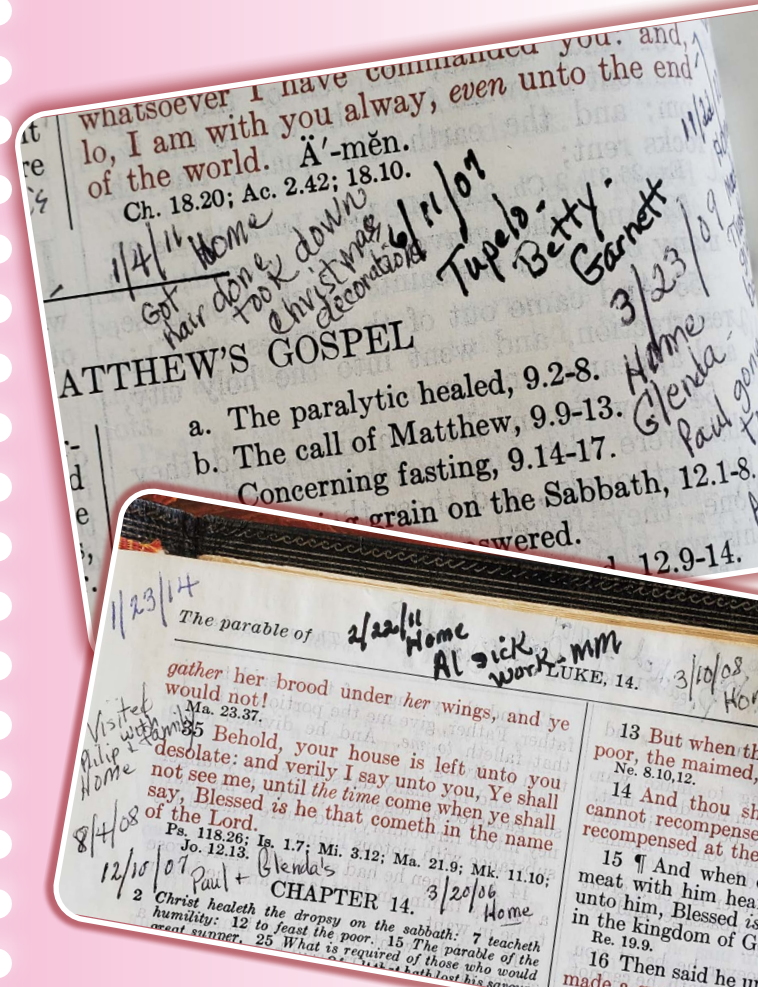 whatsoever I have commanded you: and,
lo, I am with you alway, even unto the end
of the world. Ä′-mĕn.
Ch. 18.20; Ac. 2.42; 18.10.
1/4/11 Home
Got
hair done,
took down
Christmas
decorations
6/11/09
Tupelo-
Betty-
Garnett
3/23/09
Home
Glenda-
Paul
ATTHEW'S GOSPEL
a. The paralytic healed, 9.2-8.
b. The call of Matthew, 9.9-13.
Concerning fasting, 9.14-17.
grain on the Sabbath, 12.1-8.
swered.
12.9-14.
1/23/14
The parable of
2/22/11
Home
Al sick
work-MM
LUKE, 14.
3/10/08
gather her brood under her wings, and ye
would not!
Ma. 23.37.
35 Behold, your house is left unto you
desolate: and verily I say unto you, Ye shall
not see me, until the time come when ye shall
say, Blessed is he that cometh in the name
of the Lord.
Ps. 118.26; Is. 1.7; Mi. 3.12; Ma. 21.9; Mk. 11.10;
Jo. 12.13.
Visited
with
Philip + family
Home
8/4/08
12/10/07
Paul + Glenda's
3/20/06
Home
CHAPTER 14.
2 Christ healeth the dropsy on the sabbath: 7 teacheth
humility: 12 to feast the poor. 15 The parable of the
great supper. 25 What is required of those who would
13 But when th
poor, the maimed,
Ne. 8.10,12.
14 And thou sh
cannot recompense
recompensed at the
15 ¶ And when
meat with him hea
unto him, Blessed is
in the kingdom of G
Re. 19.9.
16 Then said he un
made a